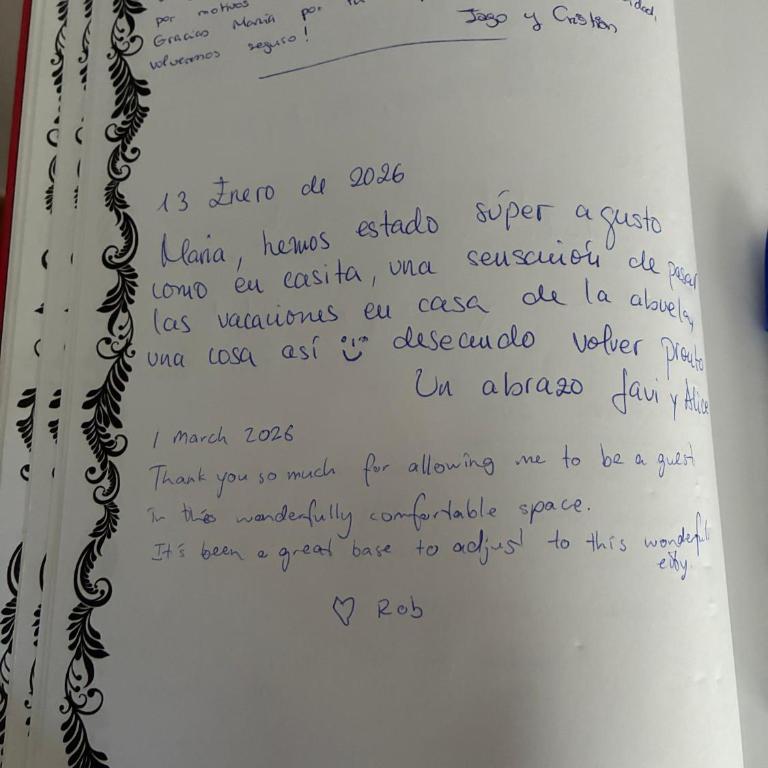 por motivos
Gracias Maria por
volveremos seguro!
Jago y Cristian
13 Enero de 2026
Maria, hemos estado súper agusto
como en casita, una sensación de pasar
las vacaciones en casa de la abuela,
una cosa así deseando volver pronto
Un abrazo Javi y Alice
1 March 2026
Thank you so much for allowing me to be a guest
in this wonderfully comfortable space.
It's been a great base to adjust to this wonderful
city.
♡ Rob